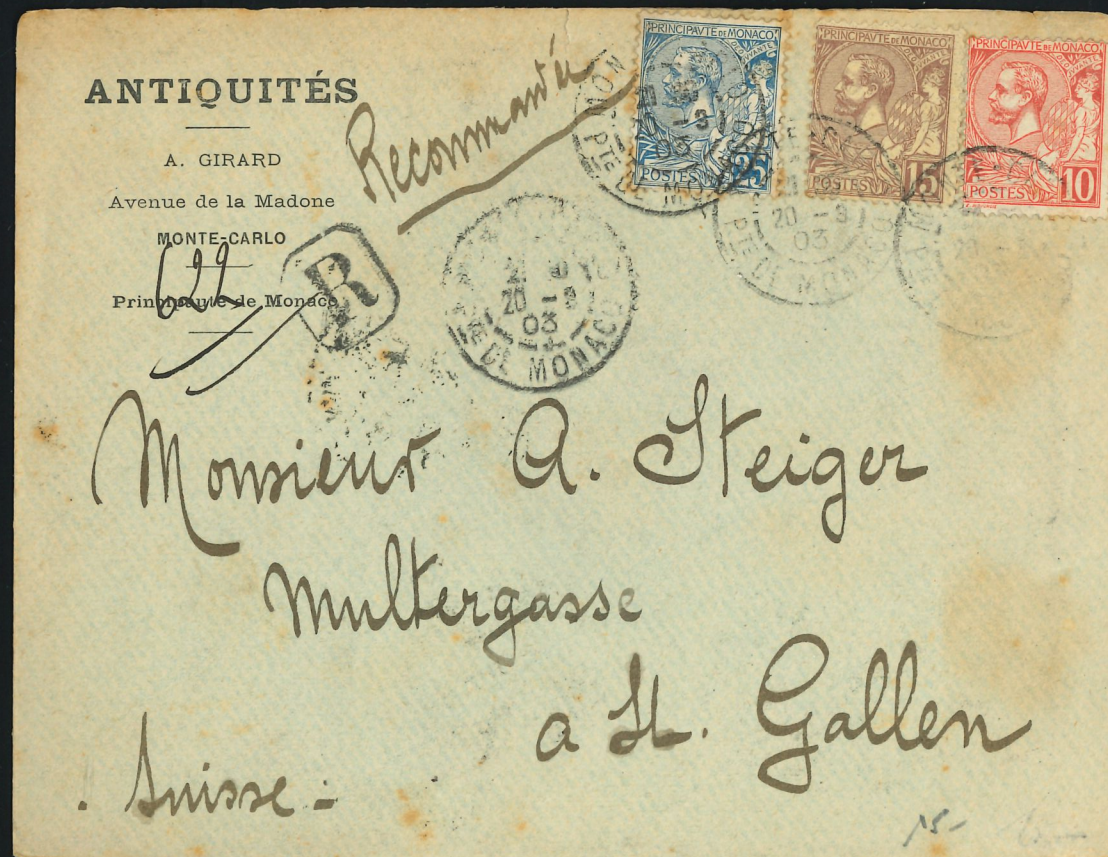 ANTIQUITÉS
A. GIRARD
Avenue de la Madone
MONTE-CARLO
622
Principauté de Monaco
Recommandée
R
PRINCIPAVTE DE MONACO
POSTES 25
PRINCIPAVTE DE MONACO
POSTES 15
PRINCIPAVTE DE MONACO
POSTES 10
20 - 3
03
PTE DE MONACO
20 - 3
03
PTE DE MONACO
Monsieur A. Steiger
Multergasse
a St. Gallen
Suisse
15-